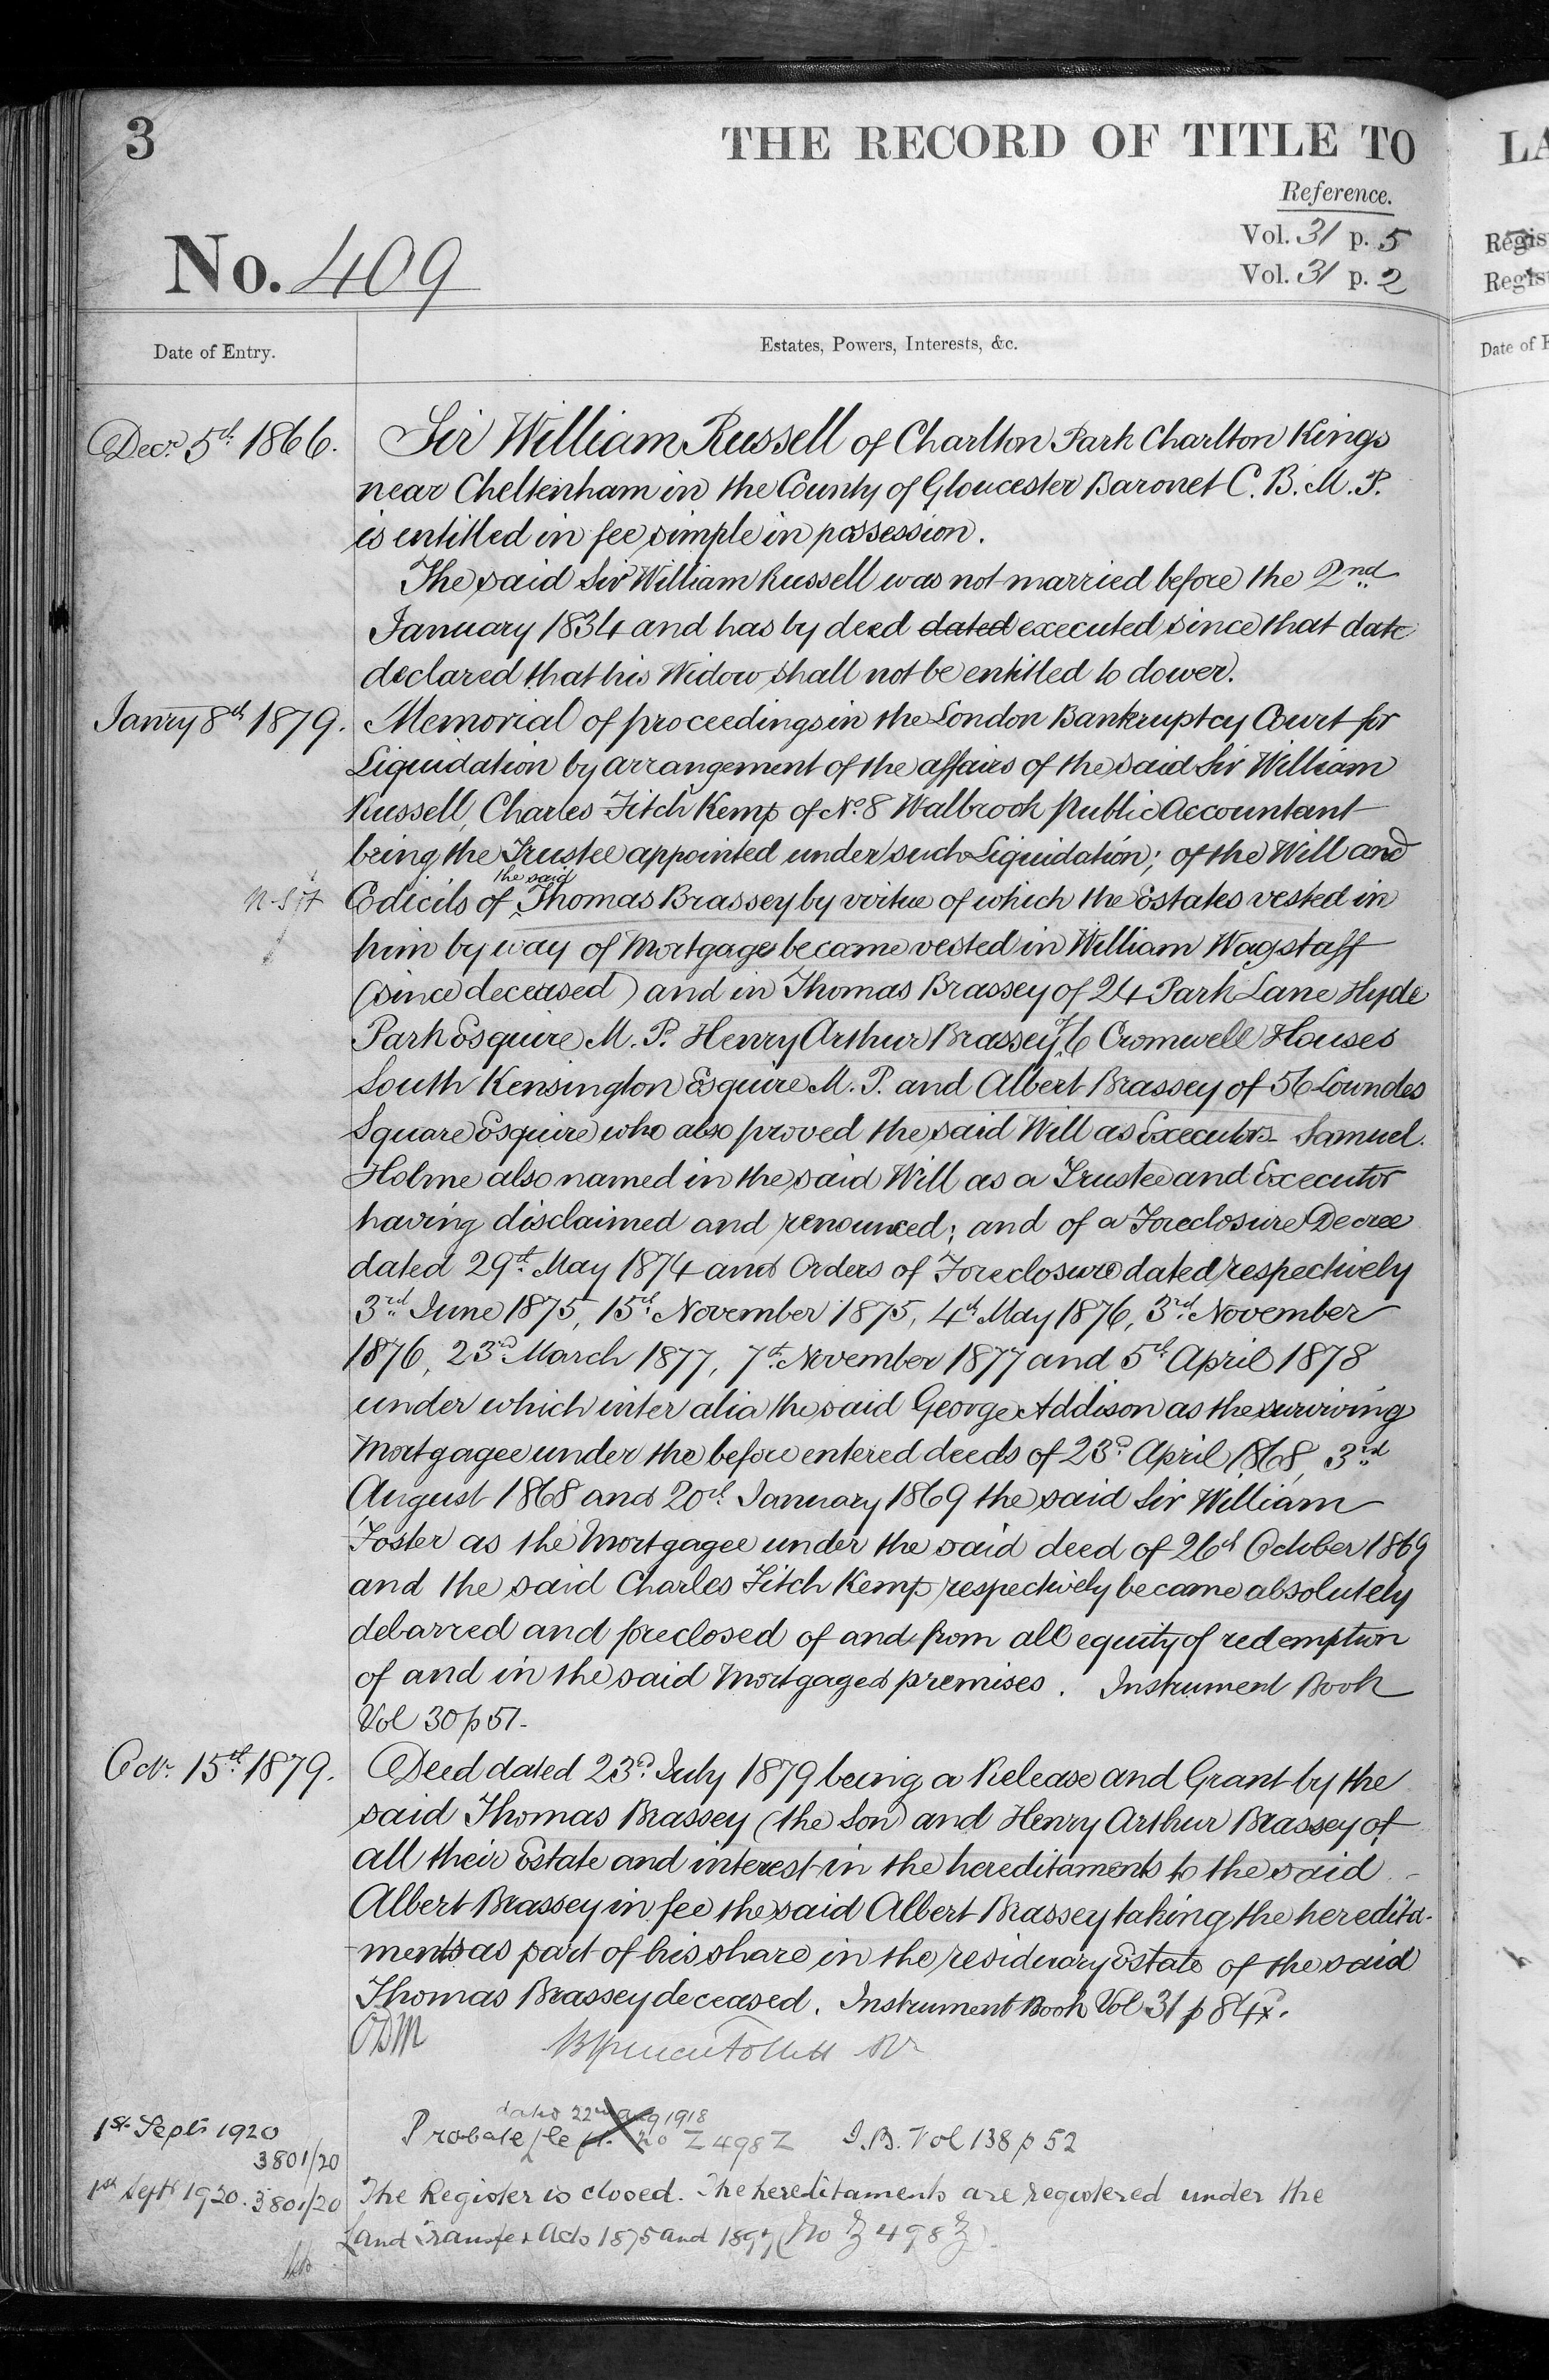 3
THE RECORD OF TITLE TO
LA
Reference.
Vol. 31 p. 5
Regis
No. 409
Vol. 31 p. 2
Regist
Date of Entry.
Estates, Powers, Interests, &c.
Date of E
Decr. 5th. 1866.
Sir William Russell of Charlton Park Charlton Kings
near Cheltenham in the County of Gloucester Baronet C. B. M. P.
is entitled in fee simple in possession.
The said Sir William Russell was not married before the 2nd
January 1834 and has by deed dated executed since that date
declared that his Widow shall not be entitled to dower.
Janry 8th 1879.
Memorial of proceedings in the London Bankruptcy Court for
Liquidation by arrangement of the affairs of the said Sir William
Russell, Charles Fitch Kemp of No. 8 Walbrook public Accountant
being the Trustee appointed under such Liquidation; of the Will and
the said
Codicils of Thomas Brassey by virtue of which the Estates vested in
him by way of Mortgage became vested in William Wagstaff
(since deceased) and in Thomas Brassey of 24 Park Lane Hyde
Park Esquire M. P. Henry Arthur Brassey of 6 Cromwell Houses
South Kensington Esquire M. P. and Albert Brassey of 56 Lowndes
Square Esquire who also proved the said Will as Executors Samuel
Holme also named in the said Will as a Trustee and Executor
having disclaimed and renounced; and of a Foreclosure Decree
dated 29th. May 1874 and Orders of Foreclosure dated respectively
3rd June 1875, 15th. November 1875, 4th May 1876, 3rd. November
1876, 23rd. March 1877, 7th. November 1877 and 5th April 1878
under which inter alia the said George Addison as the surviving
Mortgagee under the before entered deeds of 23d. April 1868, 3rd
August 1868 and 20th. January 1869 the said Sir William
Foster as the Mortgagee under the said deed of 26th October 1869
and the said Charles Fitch Kemp respectively became absolutely
debarred and foreclosed of and from all equity of redemption
of and in the said Mortgaged premises. Instrument Book
Vol 30 p 51.
Octr. 15th. 1879.
Deed dated 23d. July 1879 being a Release and Grant by the
said Thomas Brassey (the Son) and Henry Arthur Brassey of
all their Estate and interest in the hereditaments to the said
Albert Brassey in fee the said Albert Brassey taking the heredita-
ments as part of his share in the residuary Estate of the said
Thomas Brassey deceased. Instrument Book Vol 31 p 84
dated 22nd Aug 1918
1st Septr 1920
Probate No Z 498 Z I.B. Vol 138 p 52
3801/20
1st Septr 1920. 3801/20
The Register is closed. The hereditaments are registered under the
Land Transfer Acts 1875 and 1897 (No Z 498 Z)